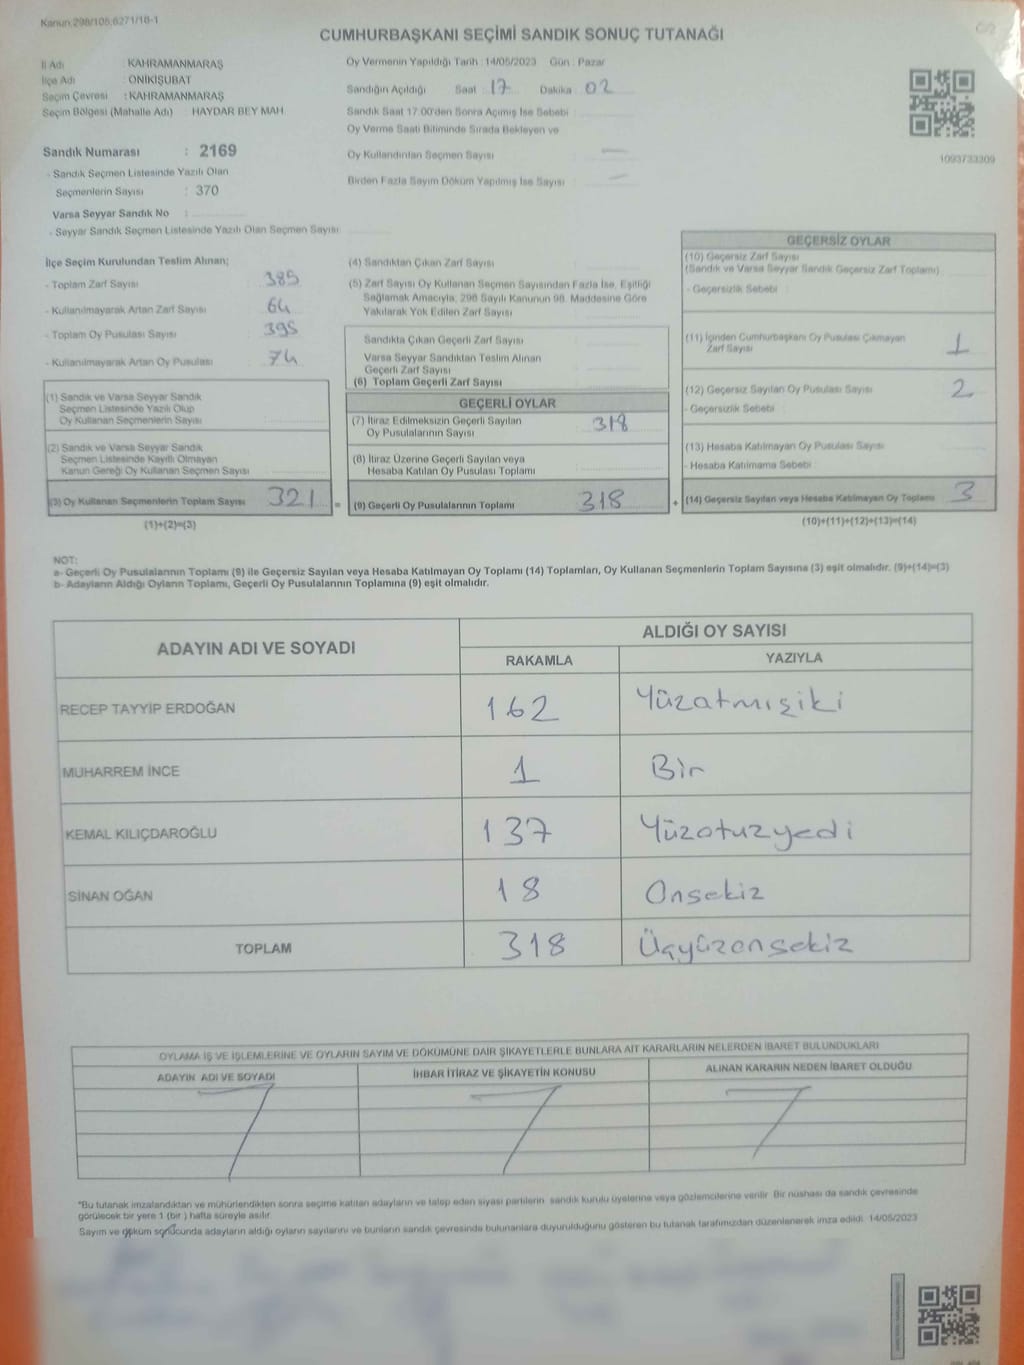 Kanun:298/105,6271/18-1
CUMHURBAŞKANI SEÇİMİ SANDIK SONUÇ TUTANAĞI
İl Adı : KAHRAMANMARAŞ
İlçe Adı : ONİKİŞUBAT
Seçim Çevresi : KAHRAMANMARAŞ
Seçim Bölgesi (Mahalle Adı) : HAYDAR BEY MAH.
Sandık Numarası : 2169
- Sandık Seçmen Listesinde Yazılı Olan
Seçmenlerin Sayısı : 370
Varsa Seyyar Sandık No :
- Seyyar Sandık Seçmen Listesinde Yazılı Olan Seçmen Sayısı
Oy Vermenin Yapıldığı Tarih : 14/05/2023 Gün : Pazar
Sandığın Açıldığı Saat 17 Dakika 02
Sandık Saat 17.00'den Sonra Açımış İse Sebebi
Oy Verme Saati Bitiminde Sırada Bekleyen ve
Oy Kullandırılan Seçmen Sayısı : —
Birden Fazla Sayım Döküm Yapılmış İse Sayısı : —
1093733309
İlçe Seçim Kurulundan Teslim Alınan;
- Toplam Zarf Sayısı : 385
- Kullanılmayarak Artan Zarf Sayısı : 64
- Toplam Oy Pusulası Sayısı : 395
- Kullanılmayarak Artan Oy Pusulası : 74
(1) Sandık ve Varsa Seyyar Sandık
Seçmen Listesinde Yazılı Olup
Oy Kullanan Seçmenlerin Sayısı
(2) Sandık ve Varsa Seyyar Sandık
Seçmen Listesinde Kayıtlı Olmayan
Kanun Gereği Oy Kullanan Seçmen Sayısı
(3) Oy Kullanan Seçmenlerin Toplam Sayısı 321 =
(1)+(2)=(3)
(4) Sandıktan Çıkan Zarf Sayısı
(5) Zarf Sayısı Oy Kullanan Seçmen Sayısından Fazla İse, Eşitliği
Sağlamak Amacıyla, 298 Sayılı Kanunun 98. Maddesine Göre
Yakılarak Yok Edilen Zarf Sayısı
Sandıkta Çıkan Geçerli Zarf Sayısı
Varsa Seyyar Sandıktan Teslim Alınan
Geçerli Zarf Sayısı
(6) Toplam Geçerli Zarf Sayısı
GEÇERLİ OYLAR
(7) İtiraz Edilmeksizin Geçerli Sayılan
Oy Pusulalarının Sayısı : 318
(8) İtiraz Üzerine Geçerli Sayılan veya
Hesaba Katılan Oy Pusulası Toplamı
(9) Geçerli Oy Pusulalarının Toplamı 318 +
GEÇERSİZ OYLAR
(10) Geçersiz Zarf Sayısı
(Sandık ve Varsa Seyyar Sandık Geçersiz Zarf Toplamı)
- Geçersizlik Sebebi :
(11) İçinden Cumhurbaşkanı Oy Pusulası Çıkmayan
Zarf Sayısı 1
(12) Geçersiz Sayılan Oy Pusulası Sayısı 2
- Geçersizlik Sebebi :
(13) Hesaba Katılmayan Oy Pusulası Sayısı
- Hesaba Katılmama Sebebi :
(14) Geçersiz Sayılan veya Hesaba Katılmayan Oy Toplamı 3
(10)+(11)+(12)+(13)=(14)
NOT:
a- Geçerli Oy Pusulalarının Toplamı (9) ile Geçersiz Sayılan veya Hesaba Katılmayan Oy Toplamı (14) Toplamları, Oy Kullanan Seçmenlerin Toplam Sayısına (3) eşit olmalıdır. (9)+(14)=(3)
b- Adayların Aldığı Oyların Toplamı, Geçerli Oy Pusulalarının Toplamına (9) eşit olmalıdır.
ADAYIN ADI VE SOYADI
ALDIĞI OY SAYISI
RAKAMLA YAZIYLA
RECEP TAYYİP ERDOĞAN 162 Yüzatmışiki
MUHARREM İNCE 1 Bir
KEMAL KILIÇDAROĞLU 137 Yüzotuzyedi
SİNAN OĞAN 18 Onsekiz
TOPLAM 318 Üçyüzonsekiz
OYLAMA İŞ VE İŞLEMLERİNE VE OYLARIN SAYIM VE DÖKÜMÜNE DAİR ŞİKAYETLERLE BUNLARA AİT KARARLARIN NELERDEN İBARET BULUNDUKLARI
ADAYIN ADI VE SOYADI İHBAR İTİRAZ VE ŞİKAYETİN KONUSU ALINAN KARARIN NEDEN İBARET OLDUĞU
*Bu tutanak imzalandıktan ve mühürlendikten sonra seçime katılan adayların ve talep eden siyasi partilerin sandık kurulu üyelerine veya gözlemcilerine verilir. Bir nüshası da sandık çevresinde
görülecek bir yere 1 (bir ) hafta süreyle asılır.
Sayım ve döküm sonucunda adayların aldığı oyların sayılarını ve bunların sandık çevresinde bulunanlara duyurulduğunu gösteren bu tutanak tarafımızdan düzenlenerek imza edildi. 14/05/2023